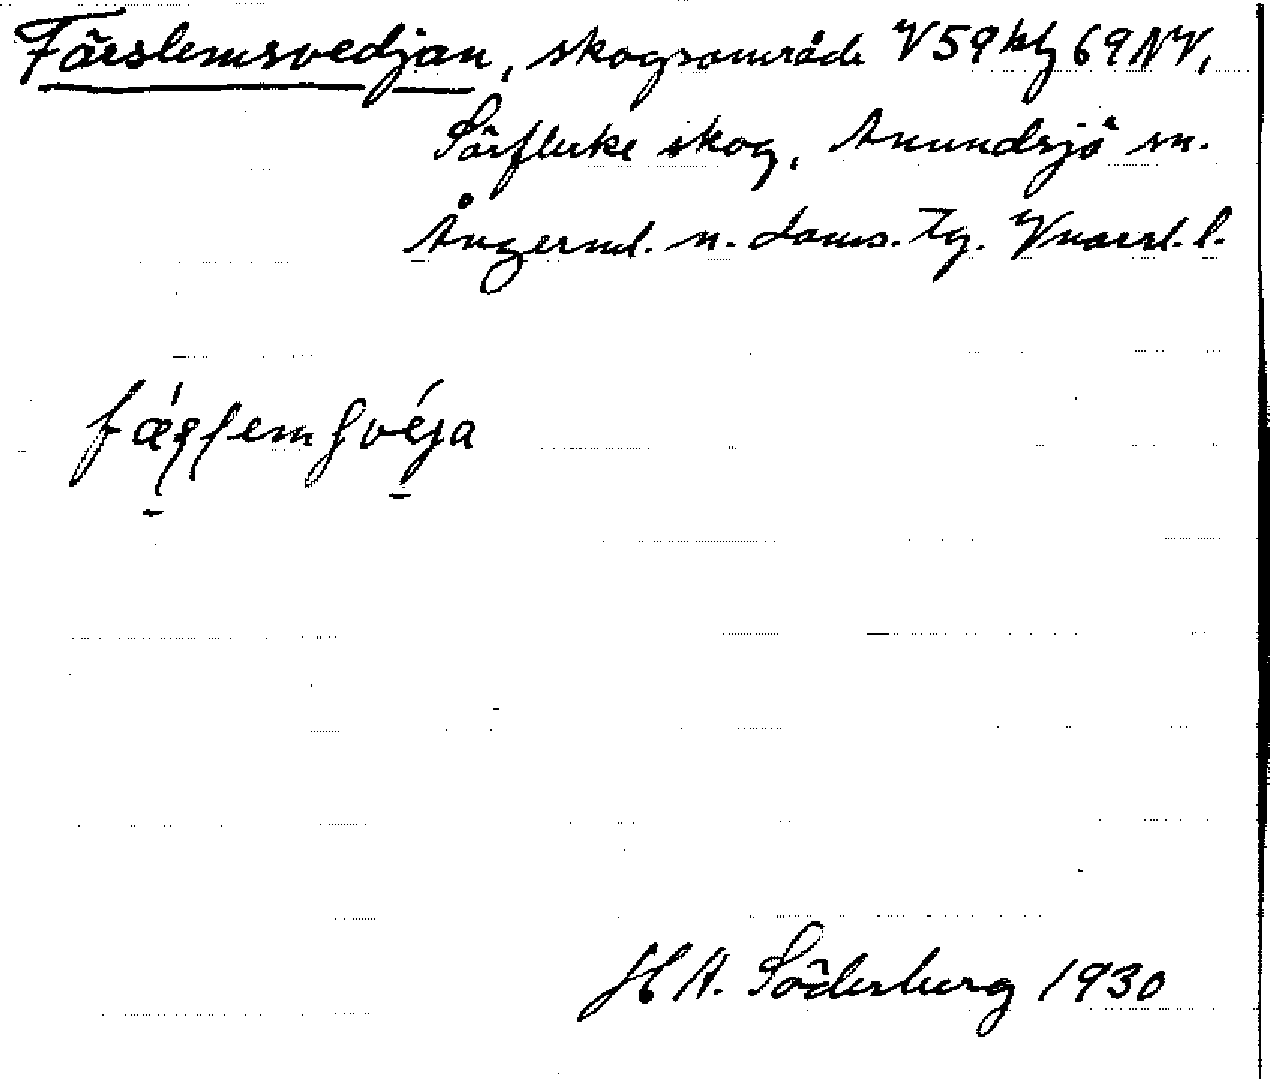 Färslemsvedjan, skogsområde V59hlj 69NV,
Sörflärke skog, Anundsjö sn.
Ångerml. n. doms. Tg. Vnorrl. l.
H A. Söderberg 1930